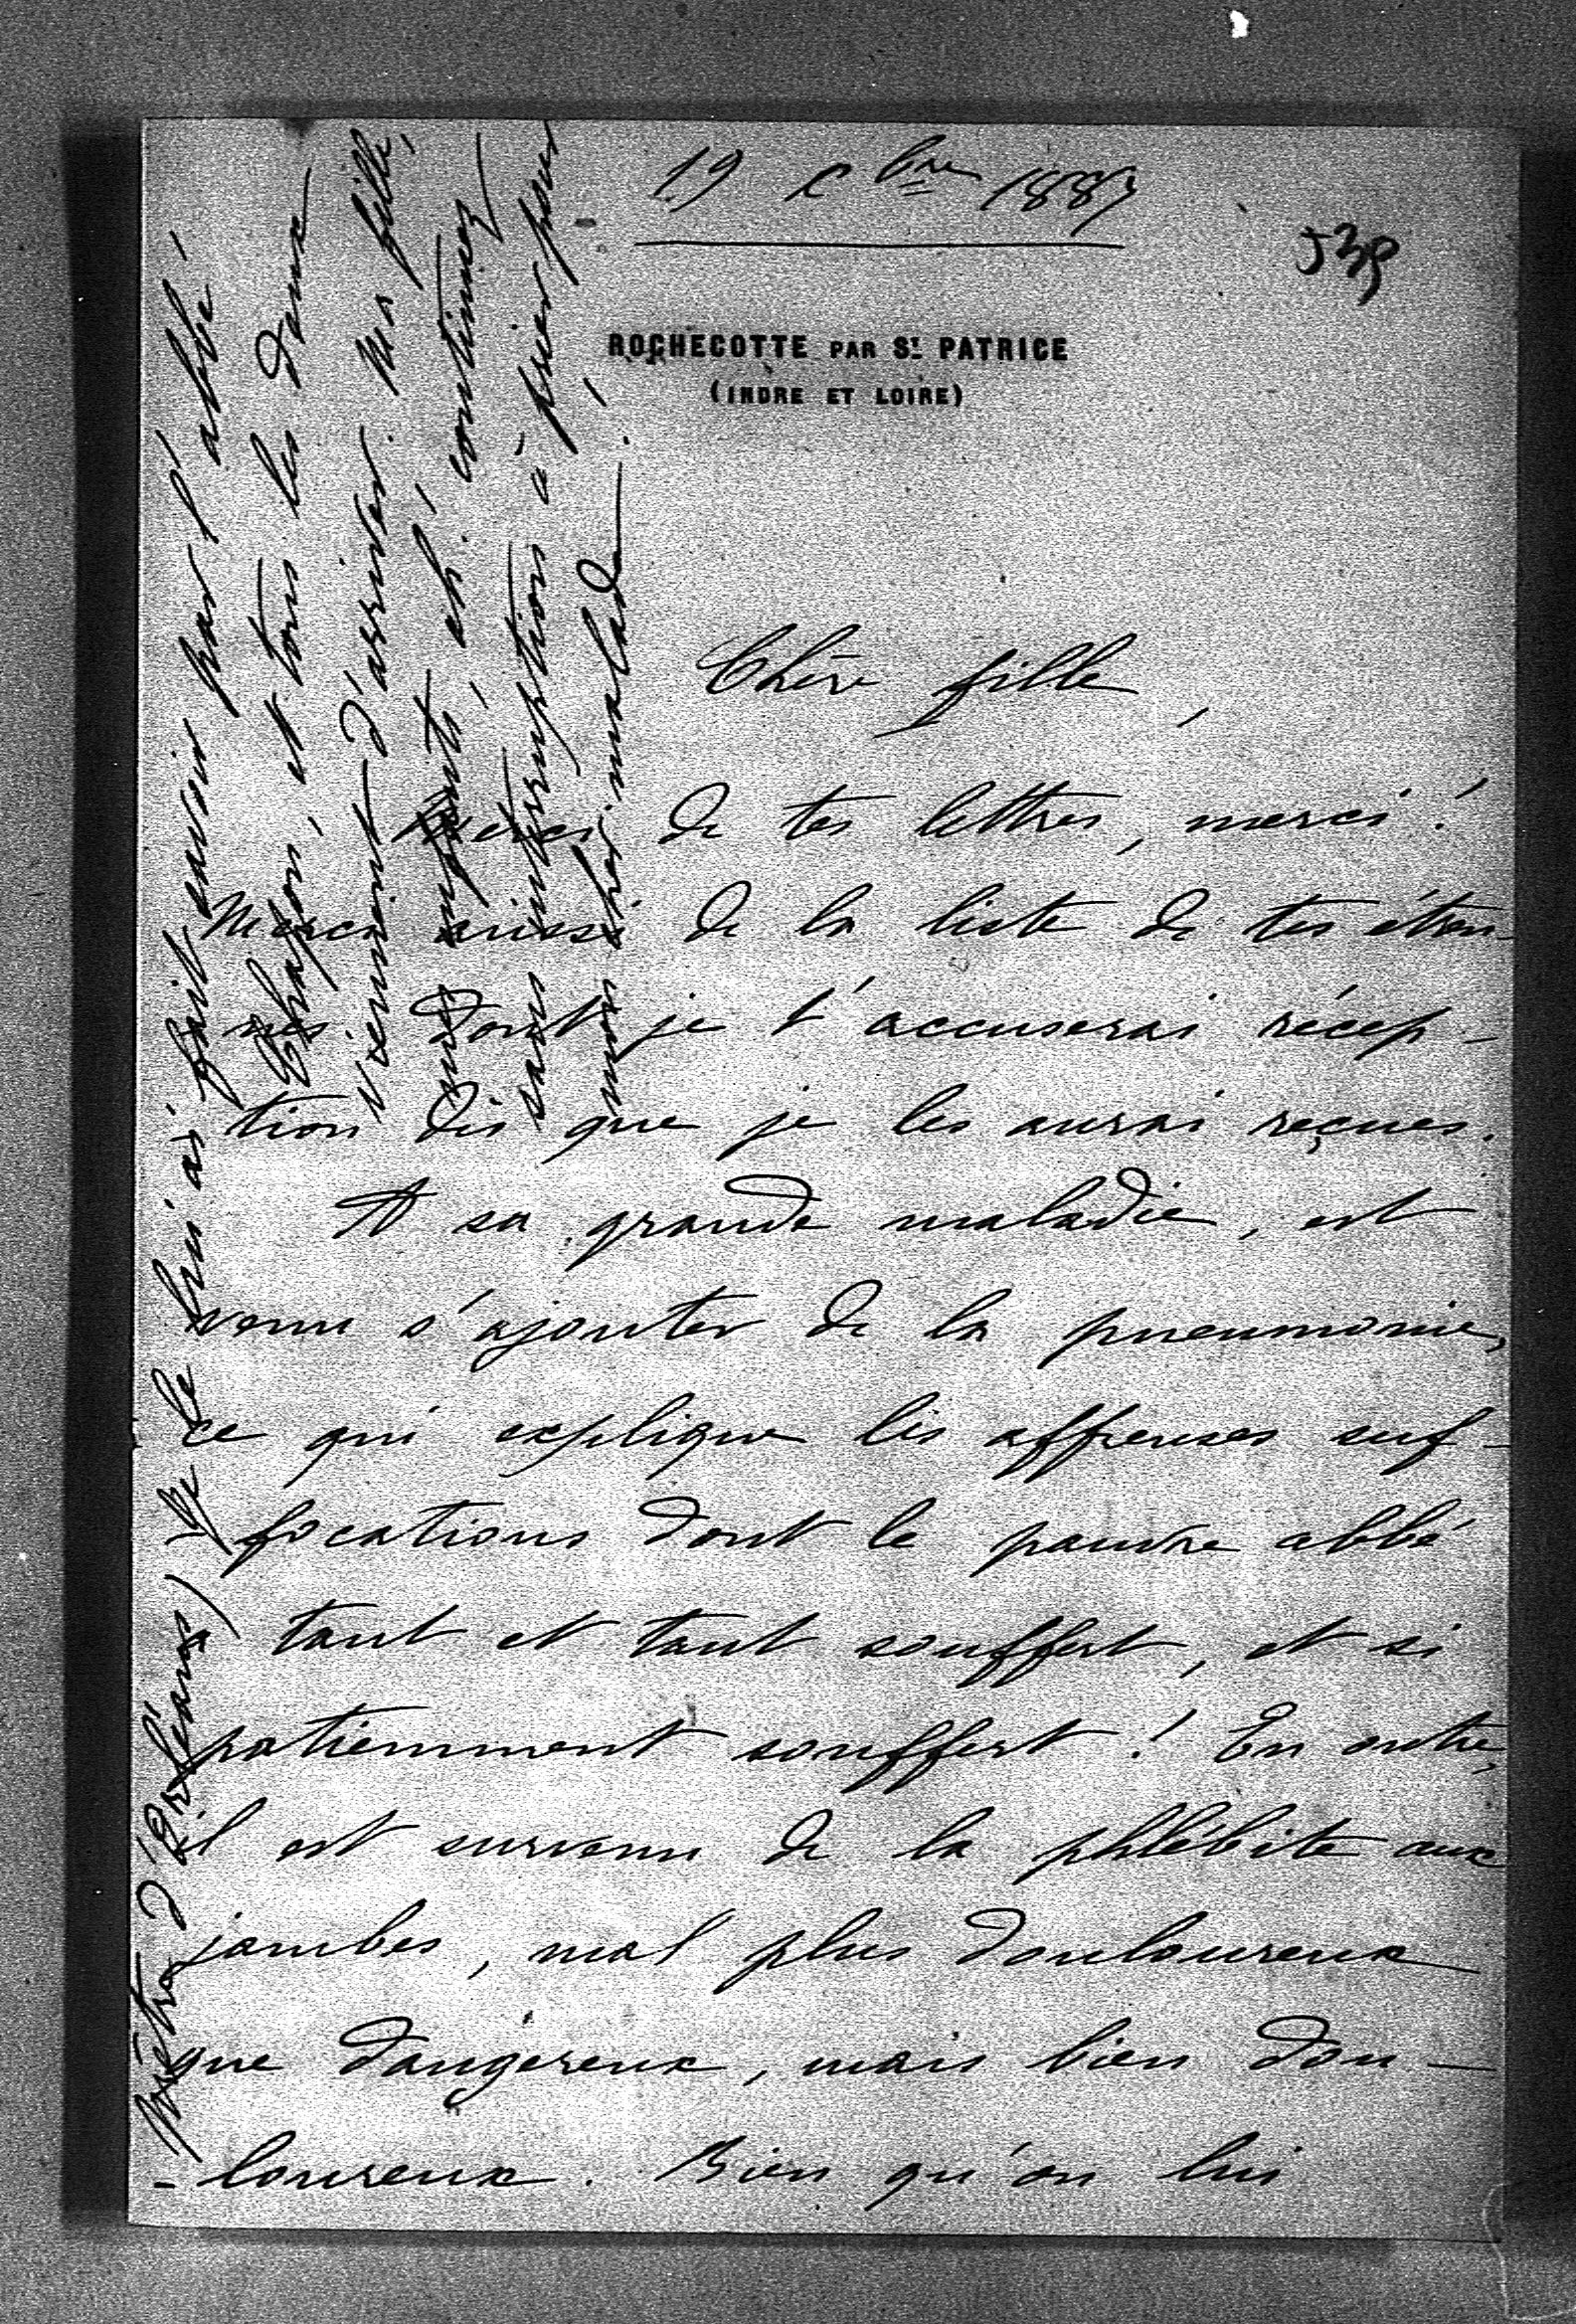 19 Xbre 1889
539
ROCHECOTTE PAR ST PATRICE
(INDRE ET LOIRE)
Chère fille,
Merci de tes lettres, merci !
Merci aussi de la liste de tes étren-
nes dont je t'accuserai récep-
tion dès que je les aurai reçues.
A sa grande maladie, est
venu s'ajouter de la pneumonie,
ce qui explique les affreuses suf-
focations dont le pauvre abbé
a tant et tant souffert, et si
patiemment souffert ! En outre,
il est survenu de la phlébite aux
jambes, mal plus douloureux
que dangereux, mais bien dou-
loureux. Bien qu'on lui
-prêtre d'Orléans) Je le lui ai fait savoir par l'abbé
Chapon, et tous les deux
viennent d'arriver. Ma fille,
mes enfants, ah ! continuez
sans interruption à prier pour
mon cher malade !